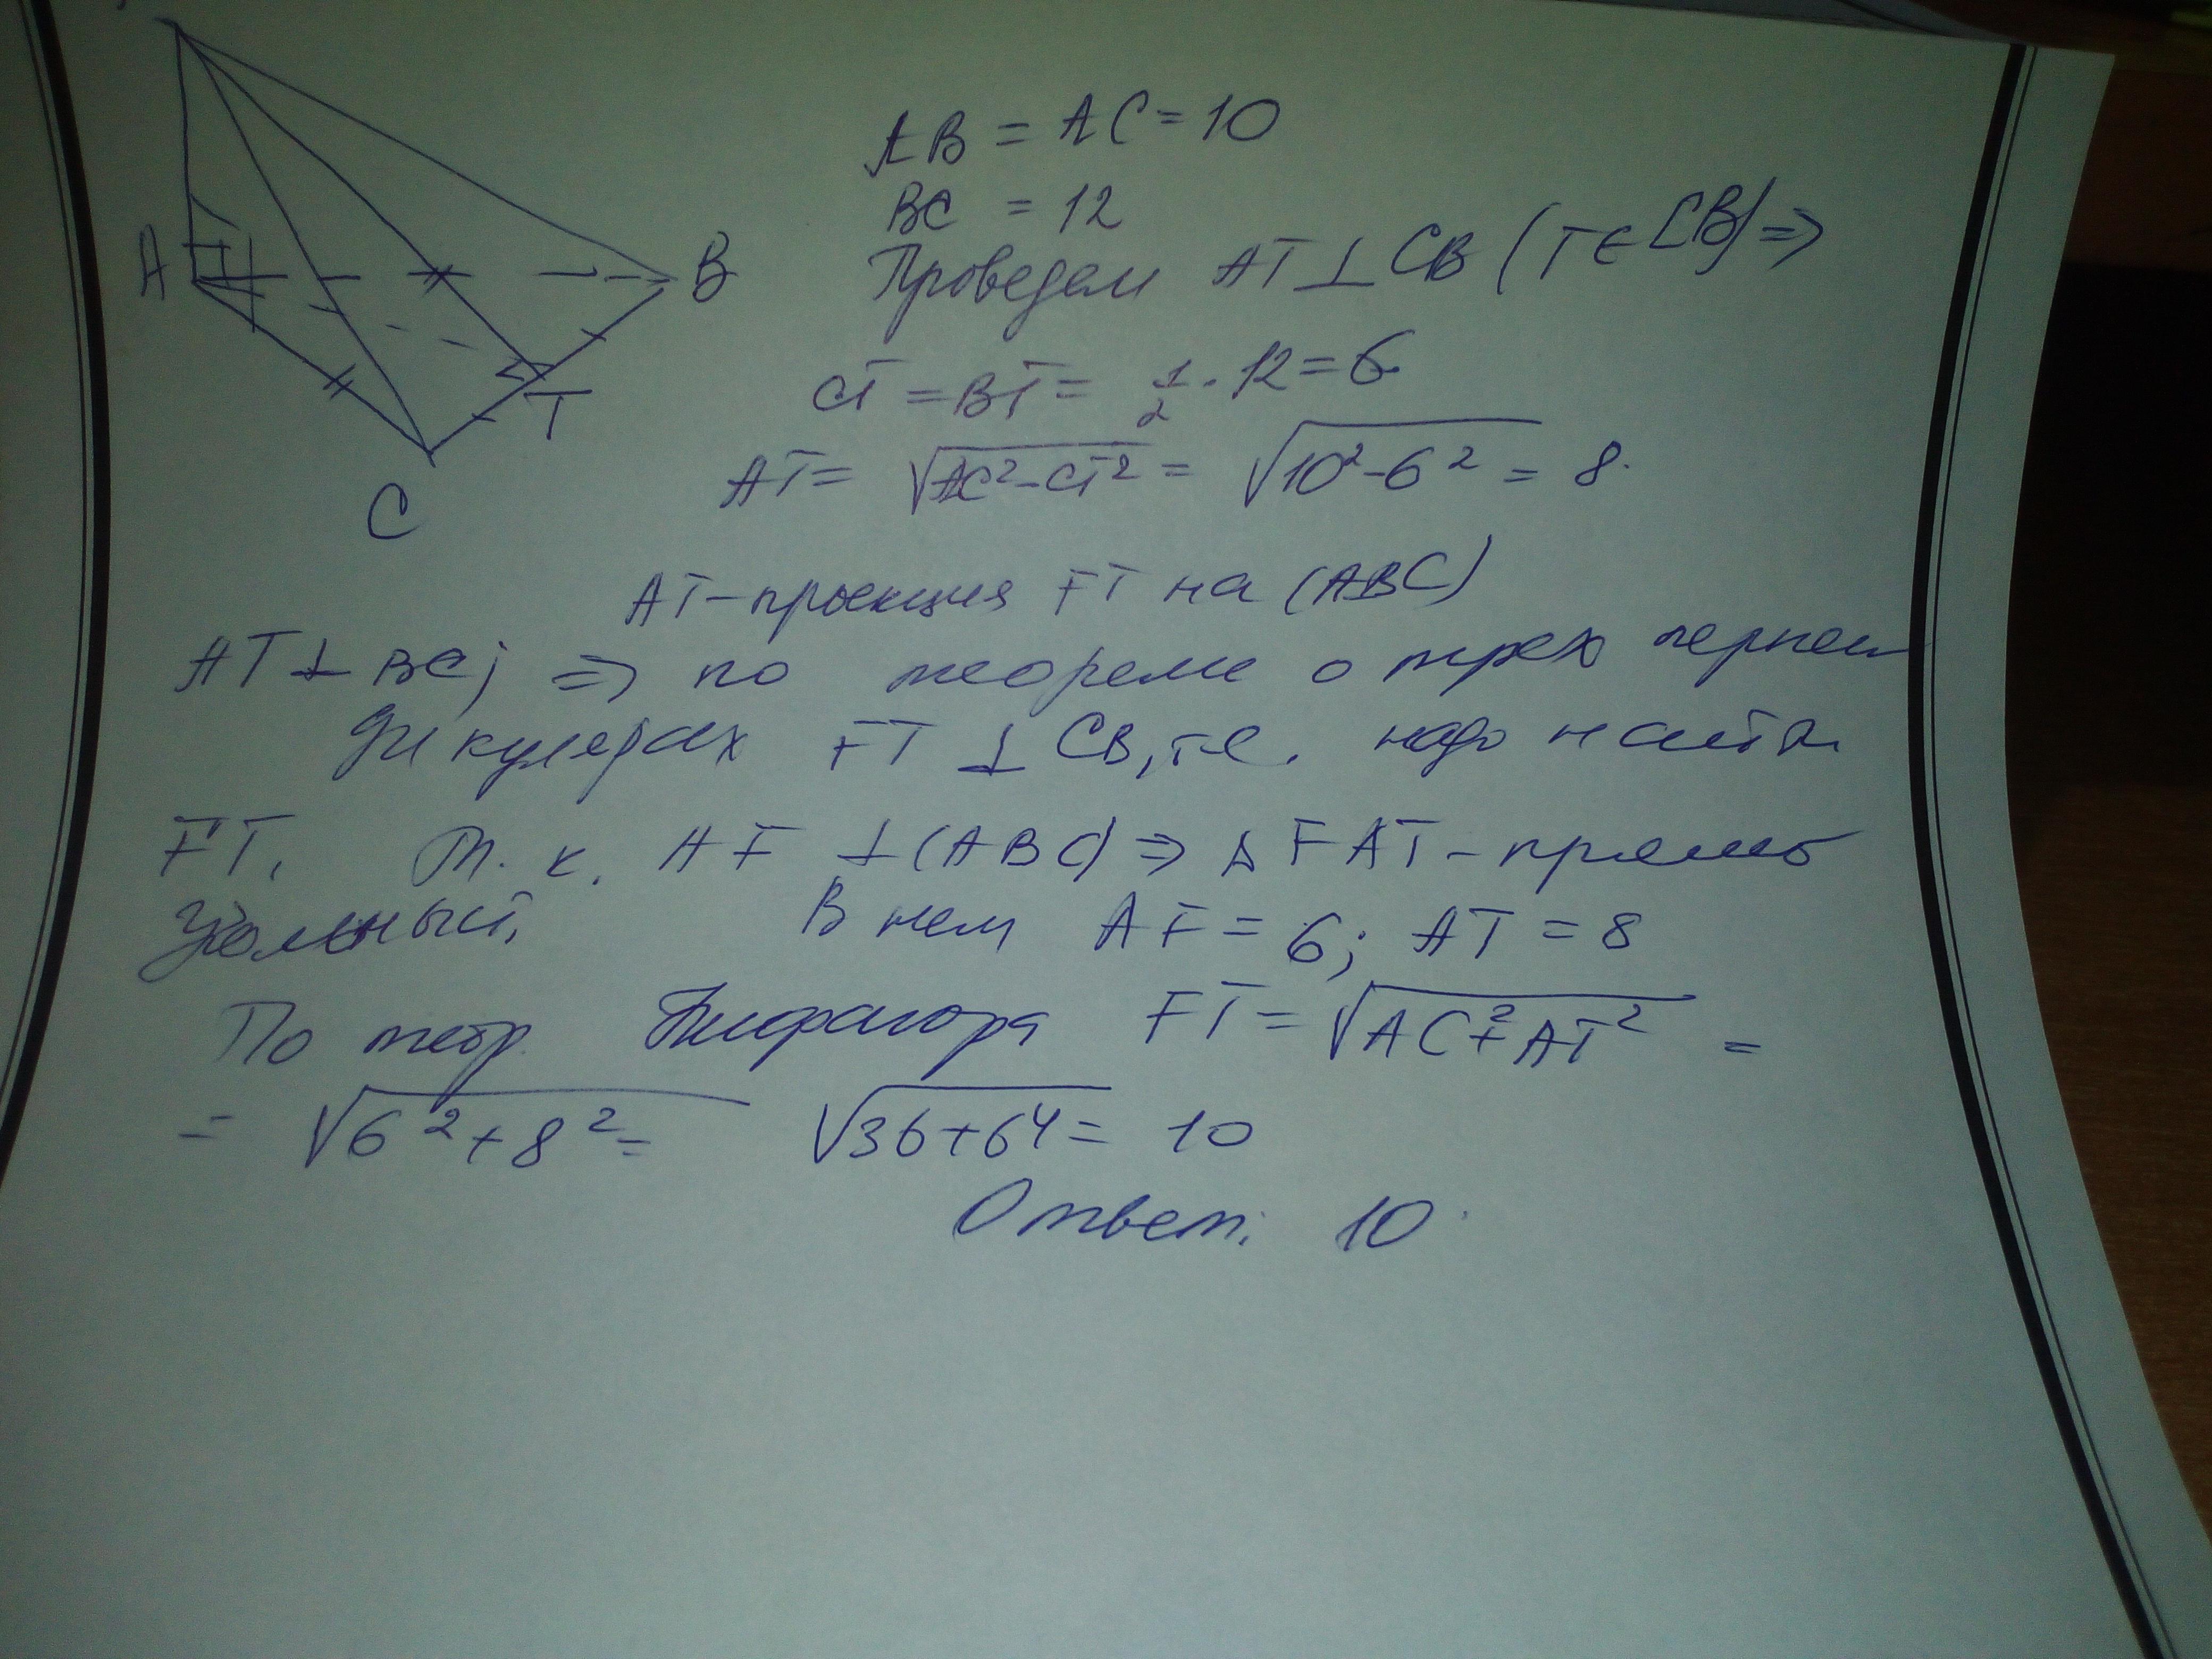 A
B
C
T
AB = AC = 10
BC = 12
Проведем AT ⊥ CB (T ∈ CB) ⇒
CT = BT = 1/2 · 12 = 6
AT = √(AC² - CT²) = √(10² - 6²) = 8.
AT - проекция FT на (ABC)
AT ⊥ BC; ⇒ по теореме о трех перпен
дикулярах FT ⊥ CB, т.е. надо найти
FT. Т. к. AF ⊥ (ABC) ⇒ Δ FAT - прямо
угольный, В нем AF = 6; AT = 8
По теор. Пифагора FT = √(AC² + AT²) =
= √(6² + 8²) = √(36 + 64) = 10
Ответ: 10.